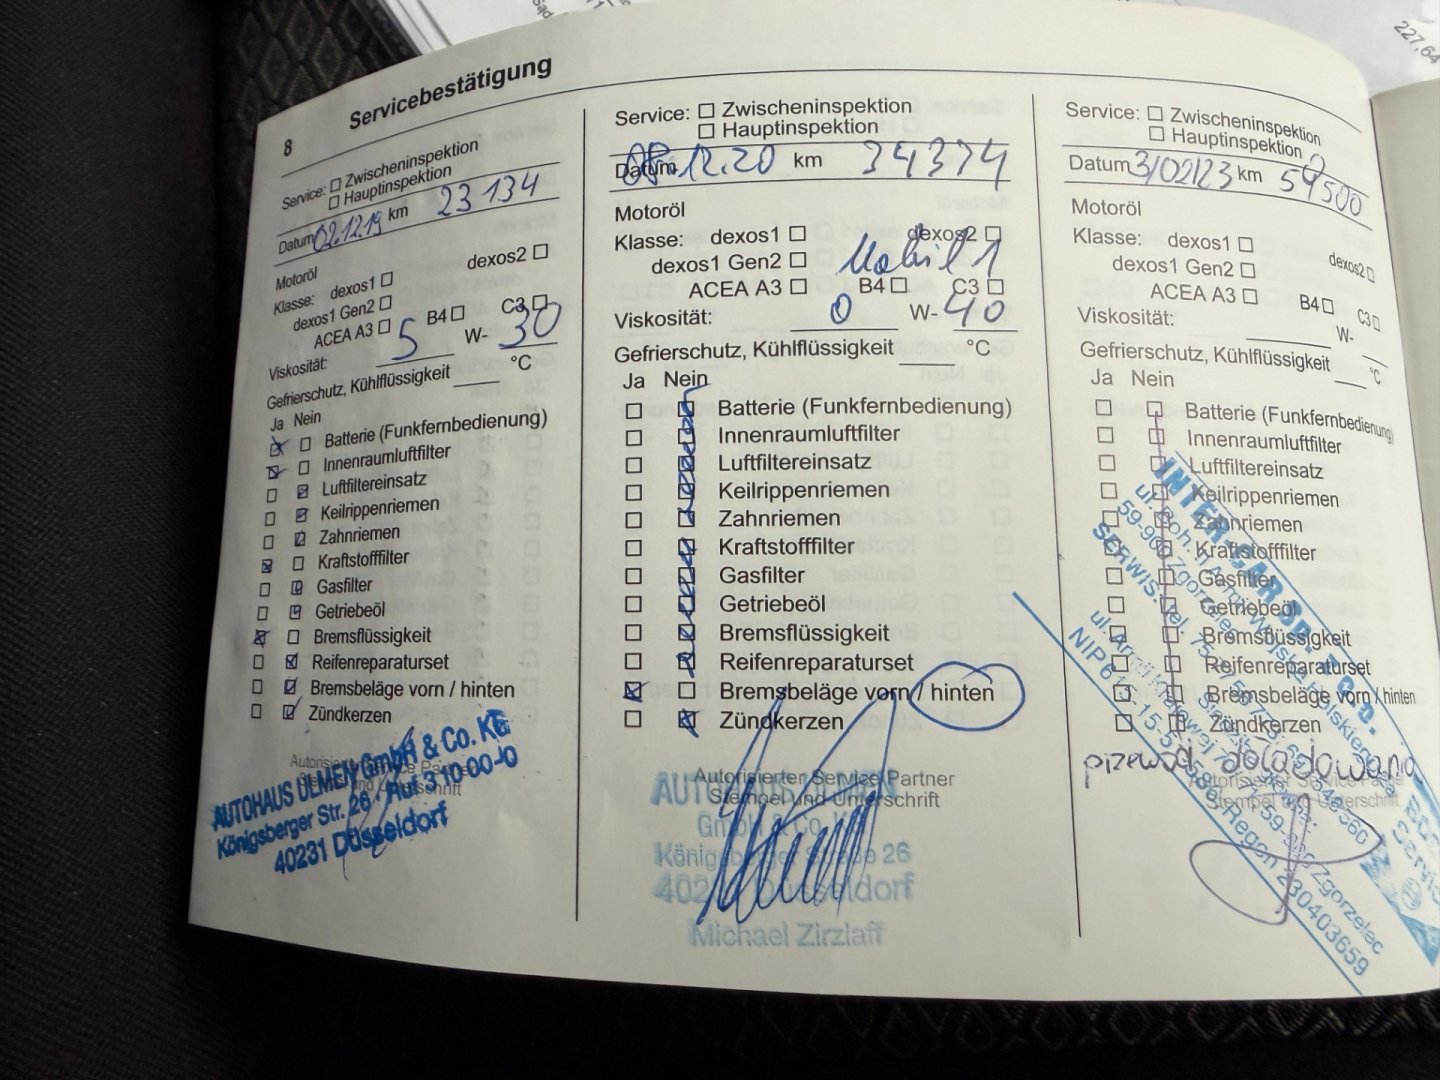 227,64
8 Servicebestätigung
Service: Zwischeninspektion
Hauptinspektion
Datum 02.12.19 km 23 134
Motoröl
Klasse: dexos1 dexos2
dexos1 Gen2
ACEA A3 B4 C3
Viskosität: 5 W- 30
Gefrierschutz, Kühlflüssigkeit °C
Ja Nein
Batterie (Funkfernbedienung)
Innenraumluftfilter
Luftfiltereinsatz
Keilrippenriemen
Zahnriemen
Kraftstofffilter
Gasfilter
Getriebeöl
Bremsflüssigkeit
Reifenreparaturset
Bremsbeläge vorn / hinten
Zündkerzen
AUTOHAUS ULMEN GmbH & Co. KG
Königsberger Str. 26 / Ruf 3 10 00-0
40231 Düsseldorf
Service: Zwischeninspektion
Hauptinspektion
Datum 08.12.20 km 34374
Motoröl
Klasse: dexos1 dexos2
dexos1 Gen2 Mobil 1
ACEA A3 B4 C3
Viskosität: 0 W- 40
Gefrierschutz, Kühlflüssigkeit °C
Ja Nein
Batterie (Funkfernbedienung)
Innenraumluftfilter
Luftfiltereinsatz
Keilrippenriemen
Zahnriemen
Kraftstofffilter
Gasfilter
Getriebeöl
Bremsflüssigkeit
Reifenreparaturset
Bremsbeläge vorn / hinten
Zündkerzen
Autorisierter Service Partner
Stempel und Unterschrift
AUTOHAUS ULMEN
GmbH & Co. KG
Königsberger Straße 26
40231 Düsseldorf
Michael Zirzlaff
Service: Zwischeninspektion
Hauptinspektion
Datum 3/02/23 km 54500
Motoröl
Klasse: dexos1 dexos2
dexos1 Gen2
ACEA A3 B4 C3
Viskosität: W-
Gefrierschutz, Kühlflüssigkeit °C
Ja Nein
Batterie (Funkfernbedienung)
Innenraumluftfilter
Luftfiltereinsatz
Keilrippenriemen
Zahnriemen
Kraftstofffilter
Gasfilter
Getriebeöl
Bremsflüssigkeit
Reifenreparaturset
Bremsbeläge vorn / hinten
Zündkerzen
Autorisierter Service
Stempel und Unterschrift
INTER-CAR
SERWIS
Zgorzelec
Regon 230403659